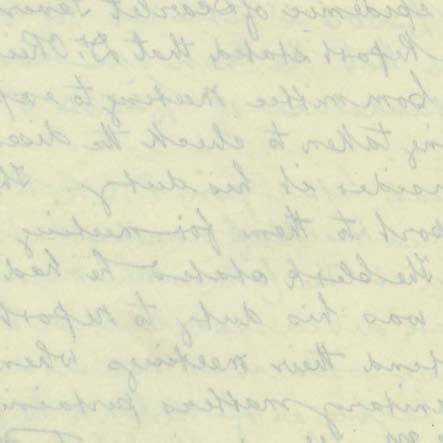 epidemic of Scarlet Fever
Report stated that Dr.
Committee meeting to
ng taken to check the dise
nsider it his duty. Th
port to them for meeting
The Clerk stated he had
was his duty to report
tend their meetings when
nitary matters pertaini